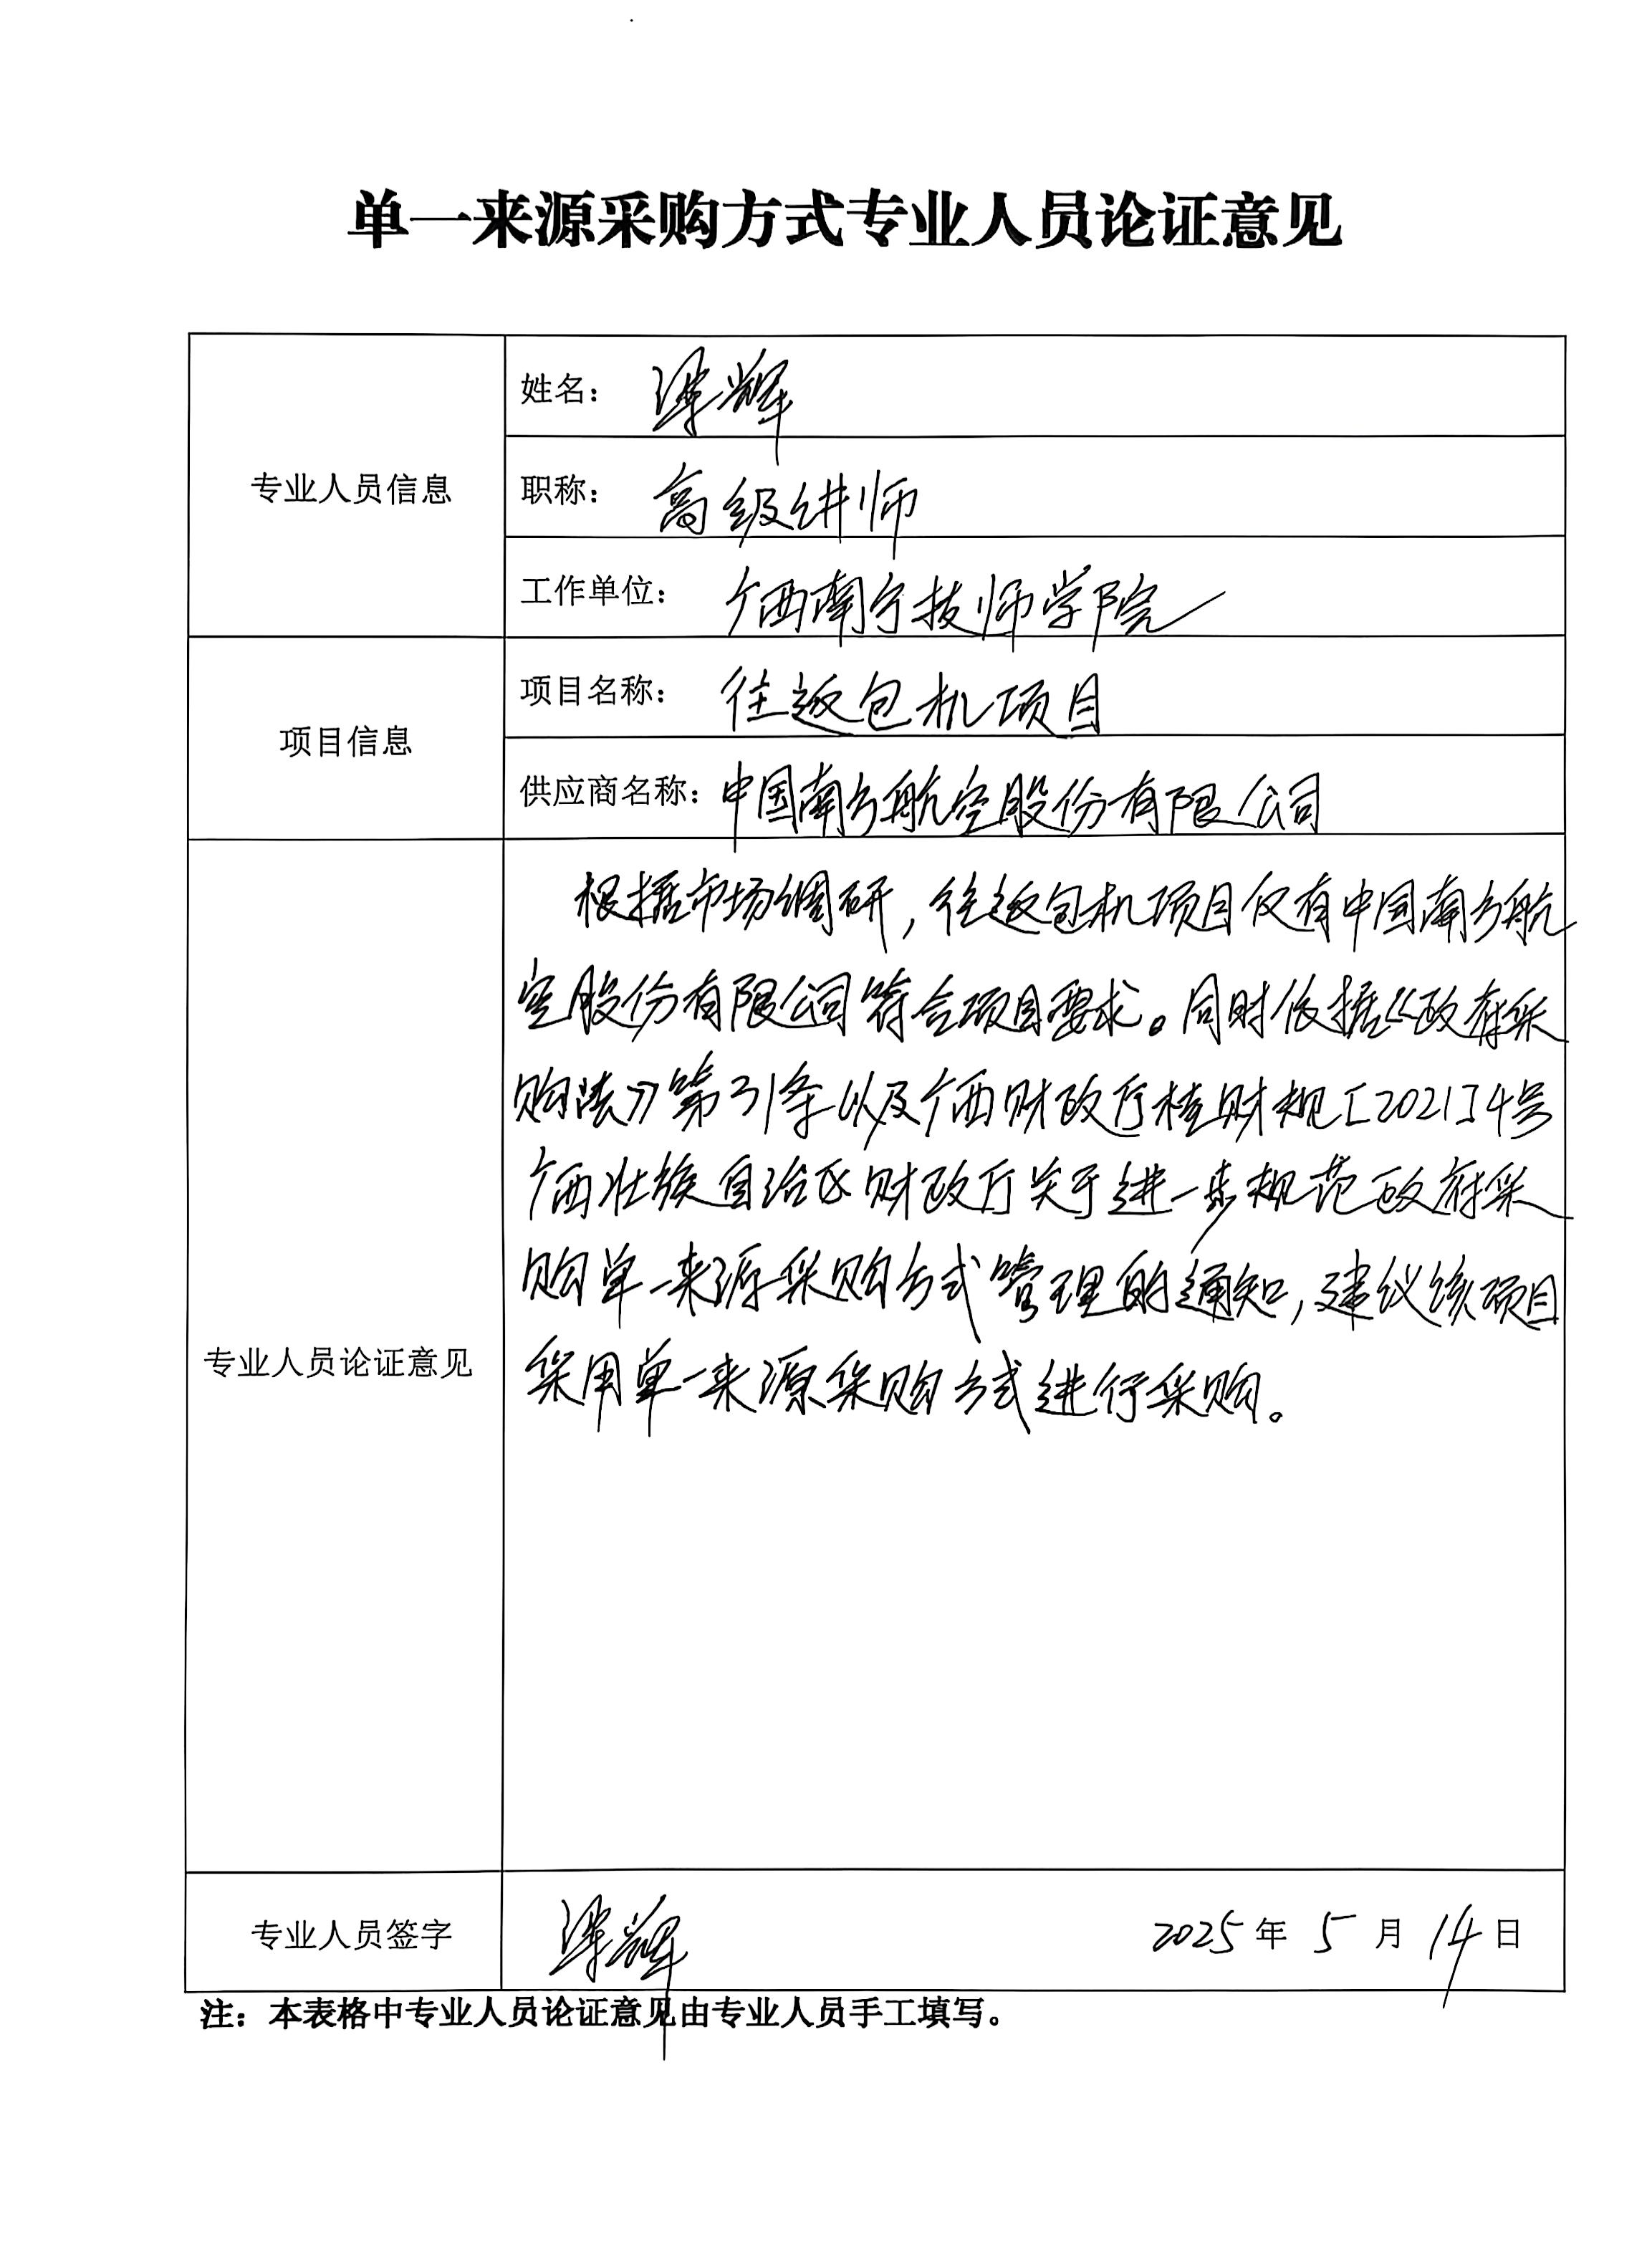 单一来源采购方式专业人员论证意见
专业人员信息
姓名：
职称：高级讲师
工作单位：广西南宁技师学院
项目信息
项目名称：往返包机项目
供应商名称：中国南方航空股份有限公司
专业人员论证意见
根据市场调研，往返包机项目仅有中国南方航
空股份有限公司符合项目要求。同时依据《政府采
购法》第31条以及广西财政厅桂财规[2021]4号
广西壮族自治区财政厅关于进一步规范政府采
购单一来源采购方式管理的通知，建议该项目
采用单一来源采购方式进行采购。
专业人员签字
2025年5月14日
注：本表格中专业人员论证意见由专业人员手工填写。